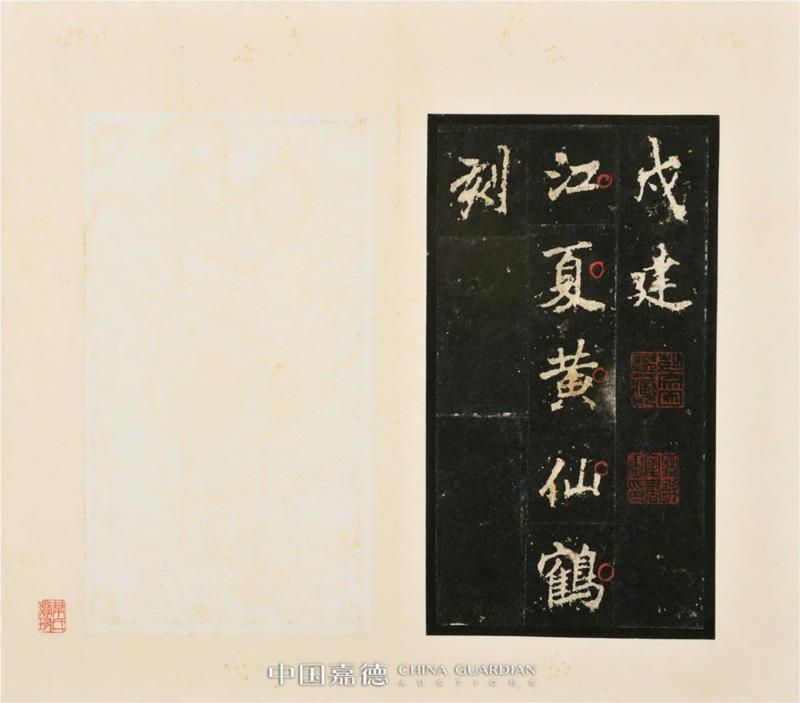 戍建
江夏黄仙鶴
刻
中国嘉德 CHINA GUARDIAN
AUCTIONS